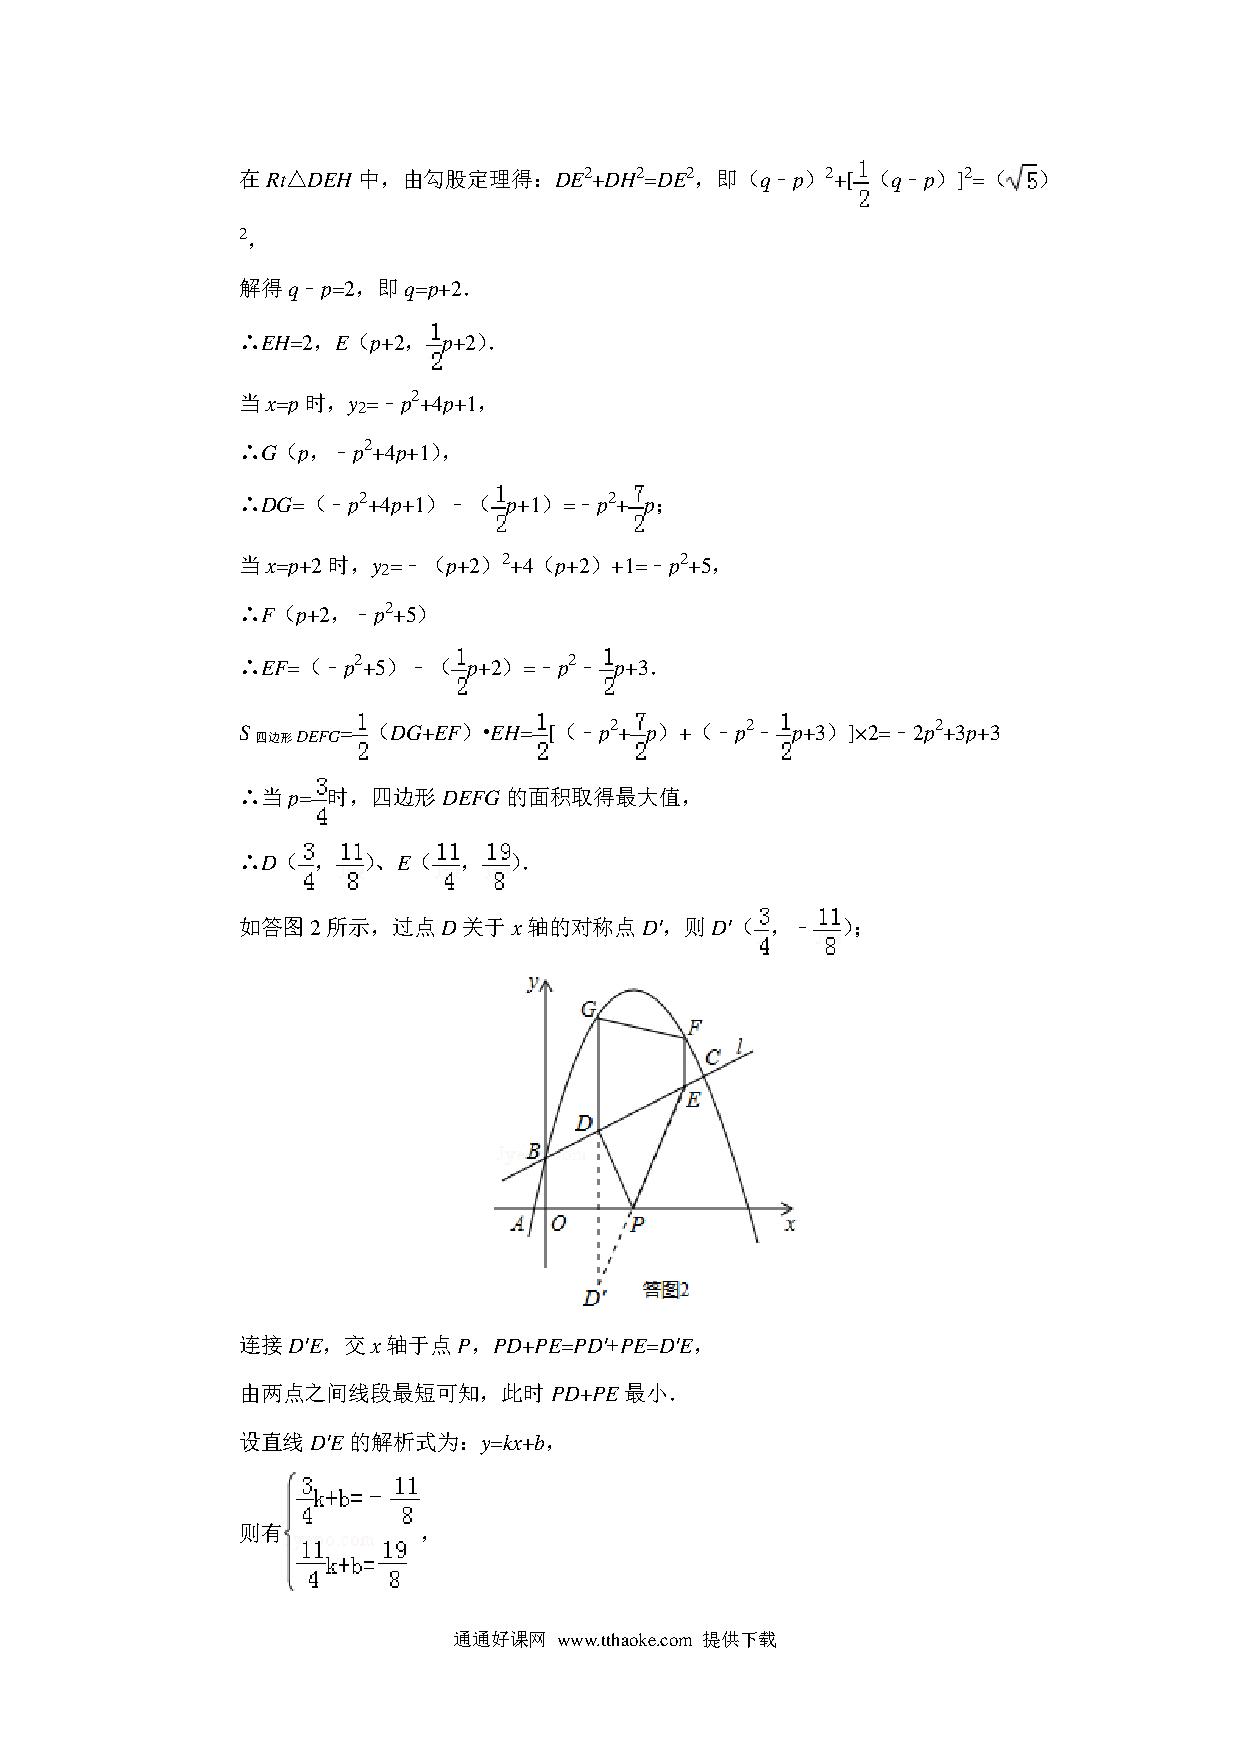 在 Rt△DEH 中，由勾股定理得：DE²+DH²=DE²，即（q﹣p）²+[1/2（q﹣p）]²=（√5）
²，
解得 q﹣p=2，即 q=p+2．
∴EH=2，E（p+2，1/2p+2）．
当 x=p 时，y₂=﹣p²+4p+1，
∴G（p，﹣p²+4p+1），
∴DG=（﹣p²+4p+1）﹣（1/2p+1）=﹣p²+7/2p；
当 x=p+2 时，y₂=﹣（p+2）²+4（p+2）+1=﹣p²+5，
∴F（p+2，﹣p²+5）
∴EF=（﹣p²+5）﹣（1/2p+2）=﹣p²﹣1/2p+3．
S 四边形 DEFG=1/2（DG+EF）•EH=1/2[（﹣p²+7/2p）+（﹣p²﹣1/2p+3）]×2=﹣2p²+3p+3
∴当 p=3/4时，四边形 DEFG 的面积取得最大值，
∴D（3/4，11/8）、E（11/4，19/8）．
如答图 2 所示，过点 D 关于 x 轴的对称点 D′，则 D′（3/4，﹣11/8）；
y
G
F
C
l
E
D
B
A
O
P
x
D′
答图2
连接 D′E，交 x 轴于点 P，PD+PE=PD′+PE=D′E，
由两点之间线段最短可知，此时 PD+PE 最小．
设直线 D′E 的解析式为：y=kx+b，
则有{3/4k+b=﹣11/8
11/4k+b=19/8，
通通好课网 www.tthaoke.com 提供下载